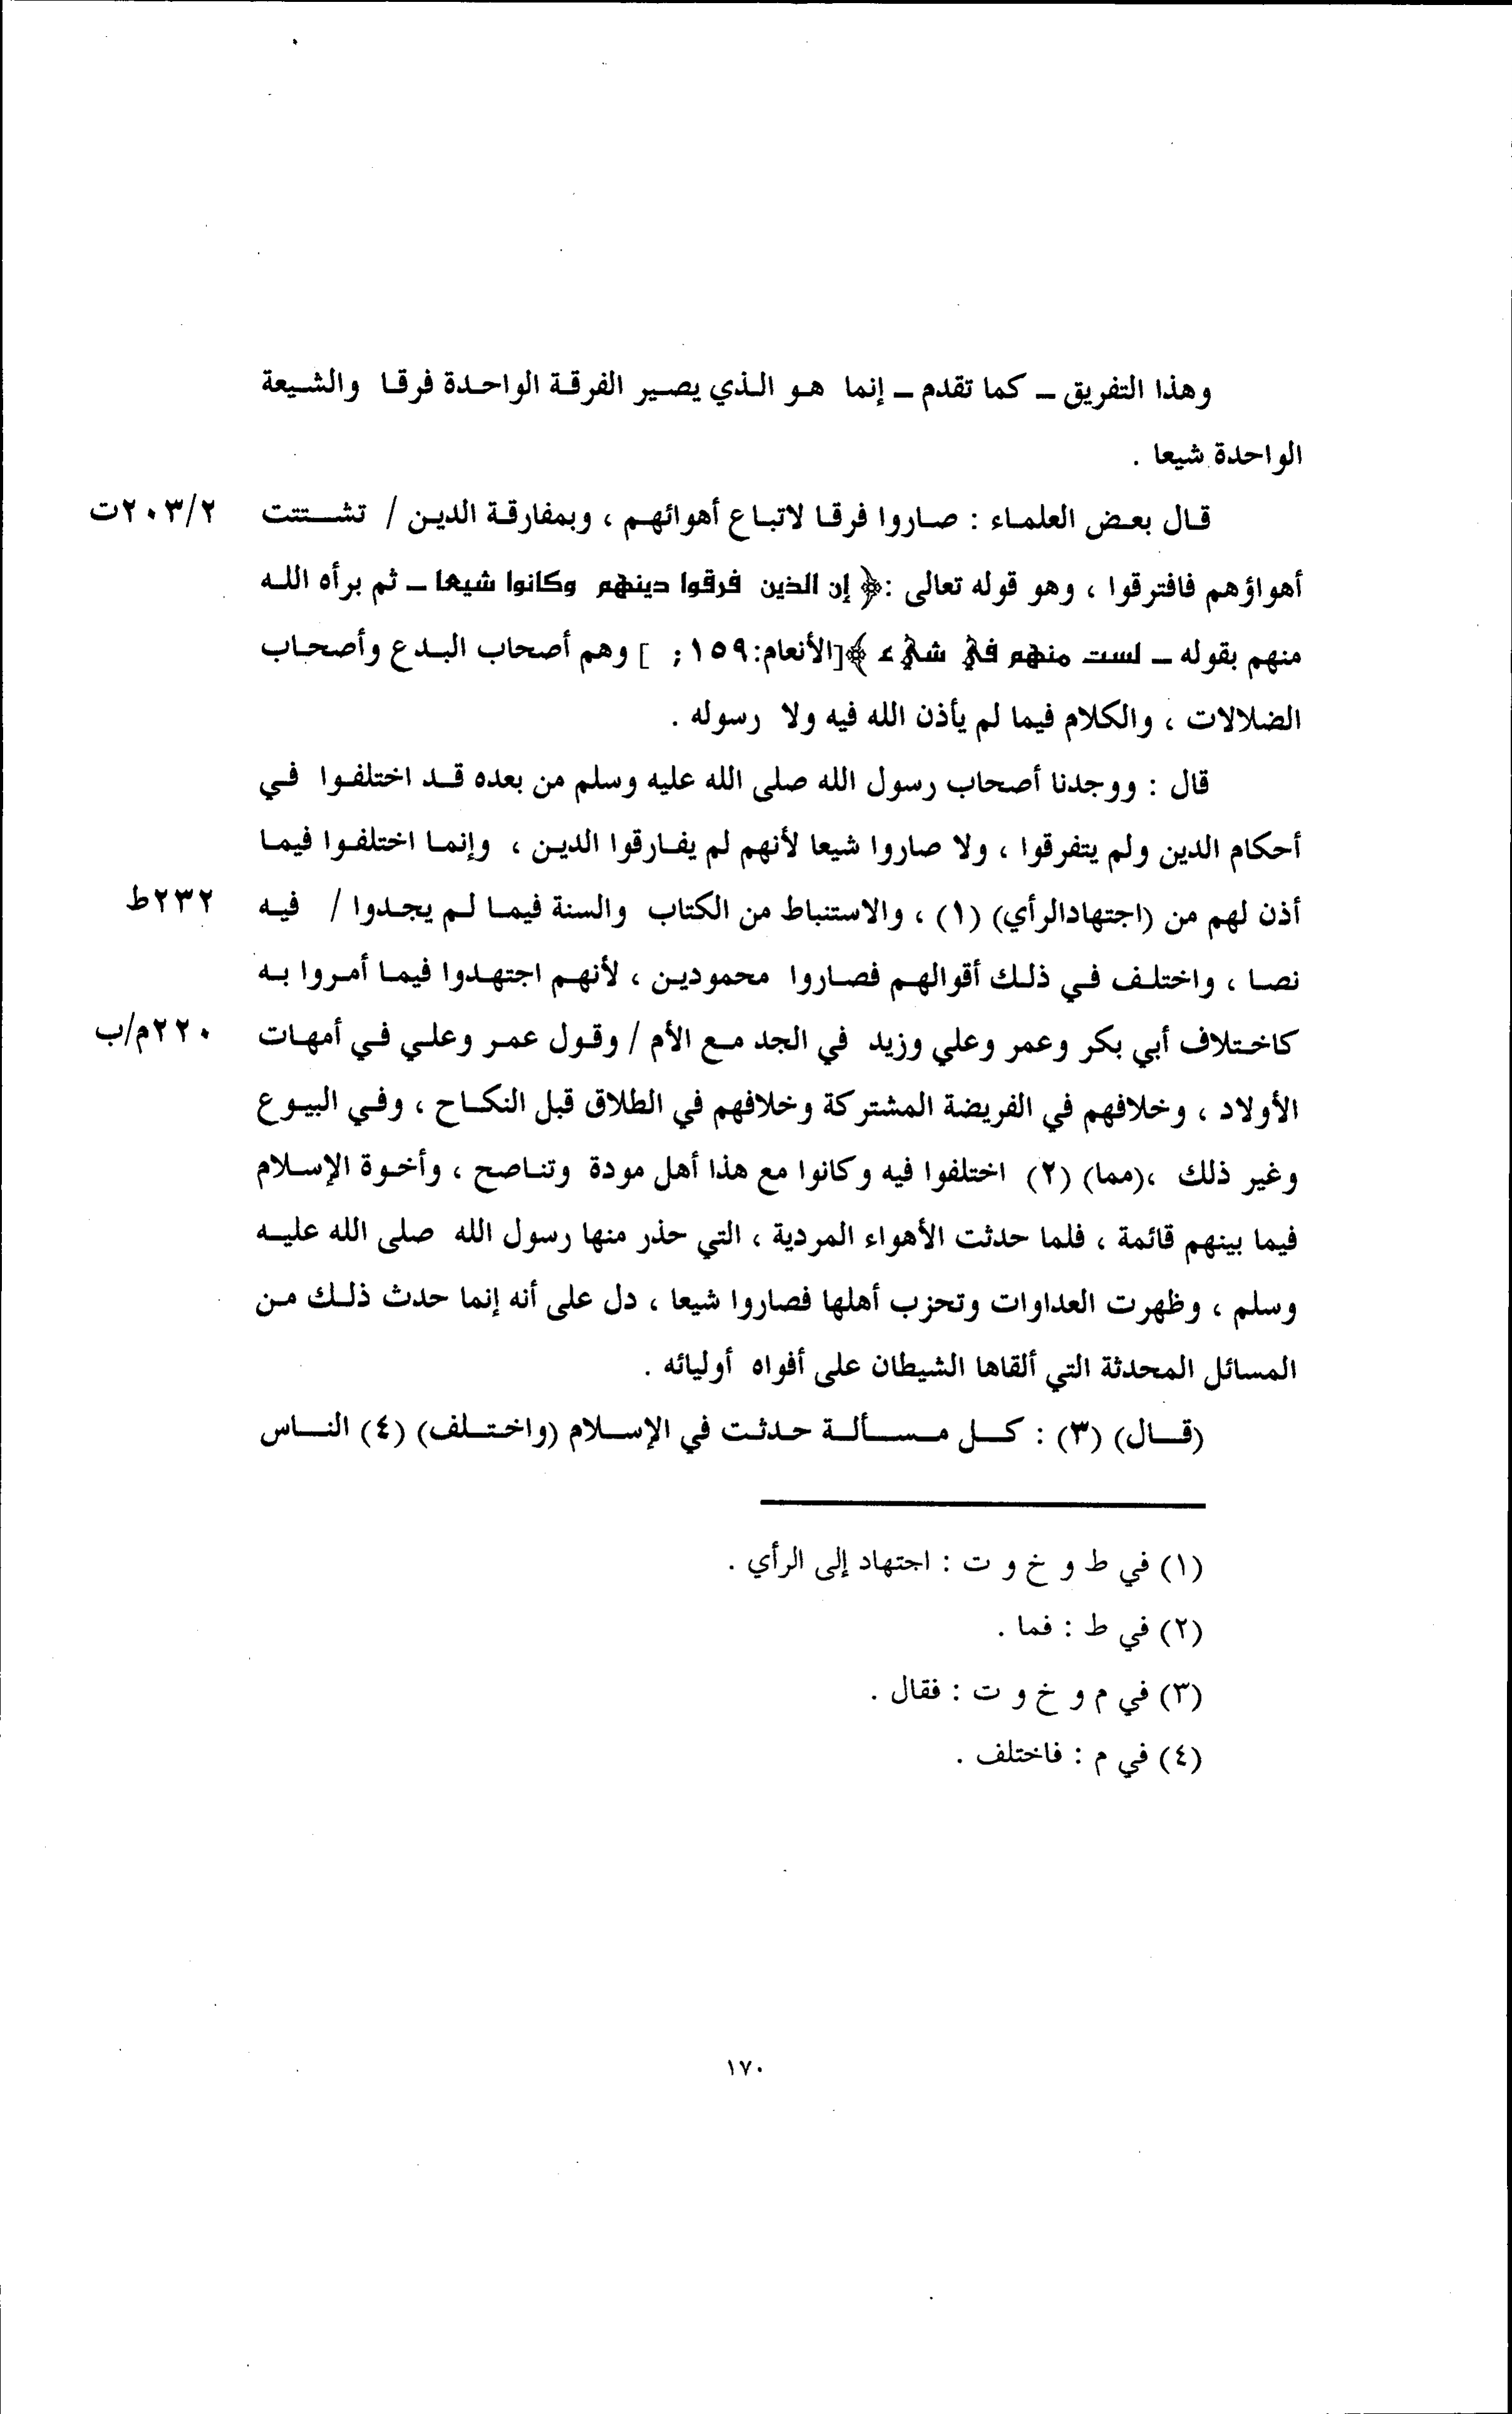 وهذا التفريق ــ كما تقدم ــ إنما هو الذي يصير الفرقة الواحدة فرقا والشيعة
الواحدة شيعا .
قال بعض العلماء : صاروا فرقا لاتباع أهوائهم ، وبمفارقة الدين / تشتتت ٢٠٣/٢ت
أهواؤهم فافترقوا ، وهو قوله تعالى :﴿ إن الذين فرقوا دينهم وكانوا شيعا ــ ثم برأه الله
منهم بقوله ــ لست منهم في شيء ﴾[الأنعام:١٥٩; ] وهم أصحاب البدع وأصحاب
الضلالات ، والكلام فيما لم يأذن الله فيه ولا رسوله .
قال : ووجدنا أصحاب رسول الله صلى الله عليه وسلم من بعده قد اختلفوا في
أحكام الدين ولم يتفرقوا ، ولا صاروا شيعا لأنهم لم يفارقوا الدين ، وإنما اختلفوا فيما
أذن لهم من (اجتهادالرأي) (١) ، والاستنباط من الكتاب والسنة فيما لم يجدوا / فيه ٢٣٢ط
نصا ، واختلف في ذلك أقوالهم فصاروا محمودين ، لأنهم اجتهدوا فيما أمروا به
كاختلاف أبي بكر وعمر وعلي وزيد في الجد مع الأم / وقول عمر وعلي في أمهات ٢٢٠م/ب
الأولاد ، وخلافهم في الفريضة المشتركة وخلافهم في الطلاق قبل النكاح ، وفي البيوع
وغير ذلك ،(مما) (٢) اختلفوا فيه وكانوا مع هذا أهل مودة وتناصح ، وأخوة الإسلام
فيما بينهم قائمة ، فلما حدثت الأهواء المردية ، التي حذر منها رسول الله صلى الله عليه
وسلم ، وظهرت العداوات وتحزب أهلها فصاروا شيعا ، دل على أنه إنما حدث ذلك من
المسائل المحدثة التي ألقاها الشيطان على أفواه أوليائه .
(قال) (٣) : كل مسألة حدثت في الإسلام (واختلف) (٤) الناس
(١) في ط و خ و ت : اجتهاد إلى الرأي .
(٢) في ط : فما .
(٣) في م و خ و ت : فقال .
(٤) في م : فاختلف .
١٧٠